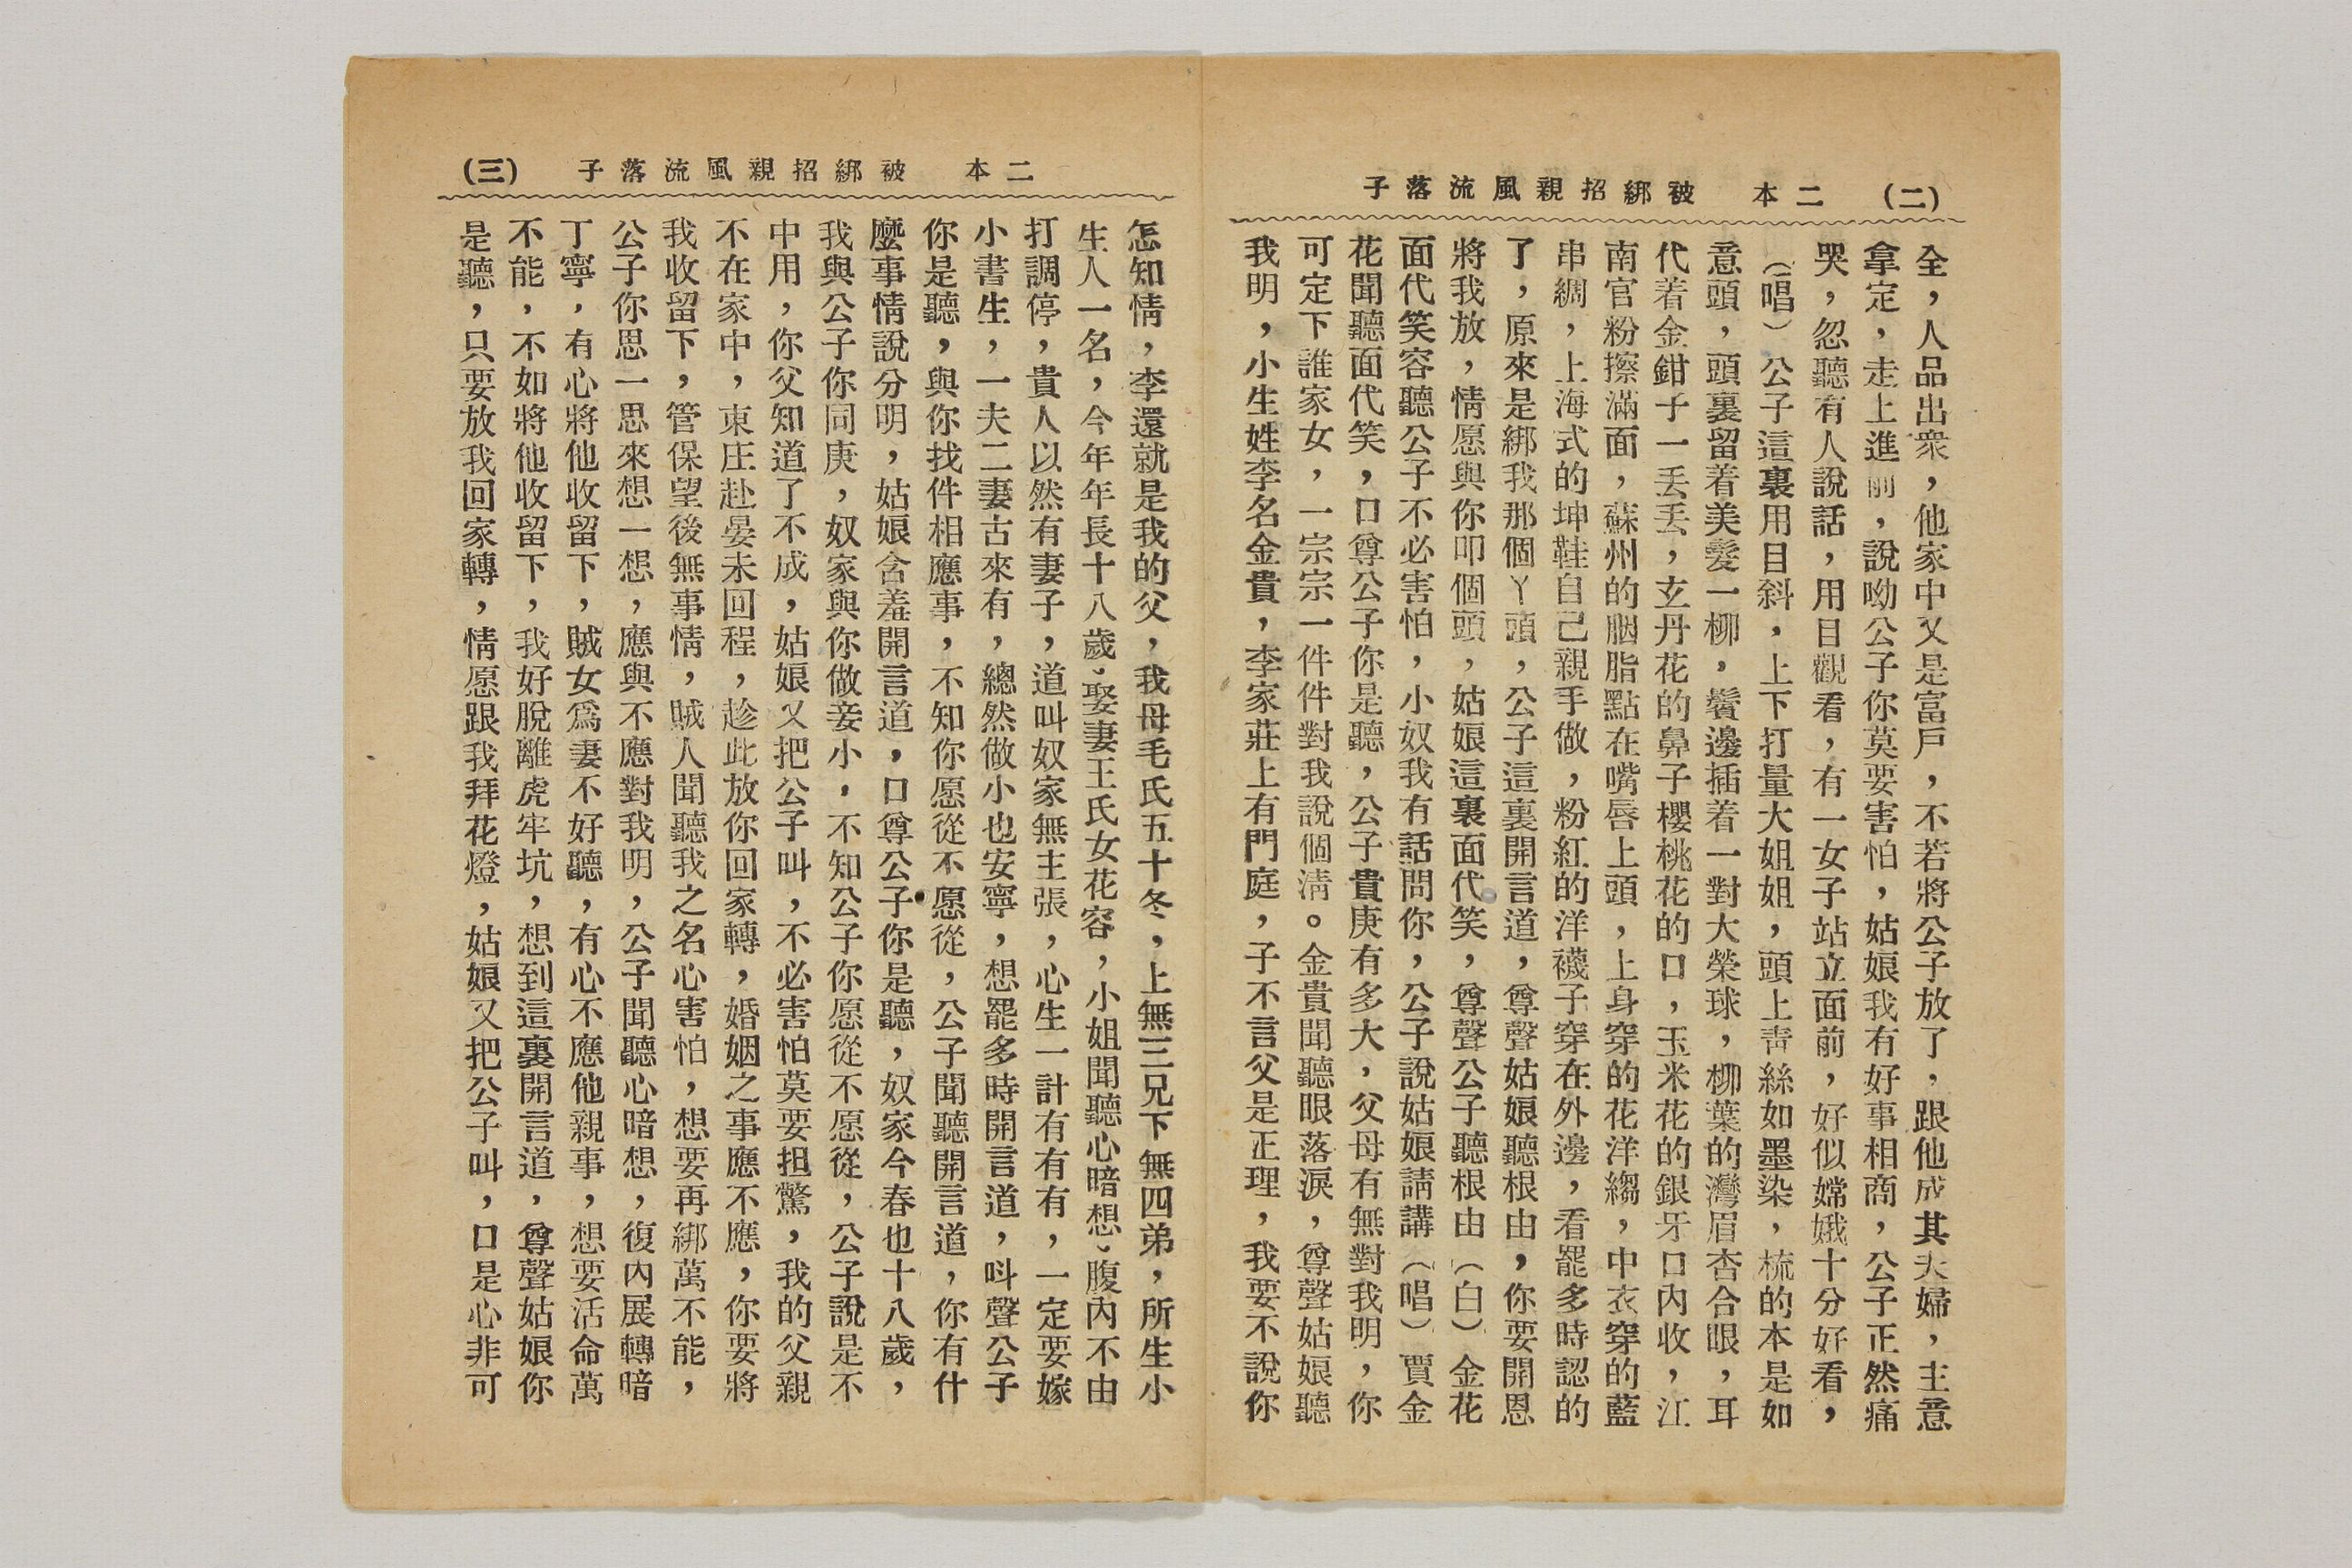 (二)　二本　被綁招親風流落子
全，人品出衆，他家中又是富戶，不若將公子放了，跟他成其夫婦，主意
拿定，走上進前，說呦公子你莫要害怕，姑娘我有好事相商，公子正然痛
哭，忽聽有人說話，用目觀看，有一女子站立面前，好似嫦娥十分好看，
（唱）公子這裏用目斜，上下打量大姐姐，頭上靑絲如墨染，梳的本是如
意頭，頭裏留着美髮一柳，鬢邊插着一對大榮球，柳葉的灣眉杏合眼，耳
代着金鉗子一丢丢，玄丹花的鼻子櫻桃花的口，玉米花的銀牙口內收，江
南官粉擦滿面，蘇州的胭脂點在嘴唇上頭，上身穿的花洋縐，中衣穿的藍
串綢，上海式的坤鞋自己親手做，粉紅的洋襪子穿在外邊，看罷多時認的
了，原來是綁我那個丫頭，公子這裏開言道，尊聲姑娘聽根由，你要開恩
將我放，情愿與你叩個頭，姑娘這裏面代笑，尊聲公子聽根由（白）金花
面代笑容聽公子不必害怕，小奴我有話問你，公子說姑娘請講（唱）賈金
花聞聽面代笑，口尊公子你是聽，公子貴庚有多大，父母有無對我明，你
可定下誰家女，一宗宗一件件對我說個淸。金貴聞聽眼落淚，尊聲姑娘聽
我明，小生姓李名金貴，李家莊上有門庭，子不言父是正理，我要不說你
二本　被綁招親風流落子　(三)
怎知情，李還就是我的父，我母毛氏五十冬，上無三兄下無四弟，所生小
生人一名，今年年長十八歲、娶妻王氏女花容，小姐聞聽心暗想、腹內不由
打調停，貴人以然有妻子，道叫奴家無主張，心生一計有有有，一定要嫁
小書生，一夫二妻古來有，總然做小也安寧，想罷多時開言道，呌聲公子
你是聽，與你找件相應事，不知你愿從不愿從，公子聞聽開言道，你有什
麼事情說分明，姑娘含羞開言道，口尊公子你是聽，奴家今春也十八歲，
我與公子你同庚，奴家與你做妾小，不知公子你愿從不愿從，公子說是不
中用，你父知道了不成，姑娘又把公子叫，不必害怕莫要担驚，我的父親
不在家中，東庄赴晏未回程，趁此放你回家轉，婚姻之事應不應，你要將
我收留下，管保望後無事情，賊人聞聽我之名心害怕，想要再綁萬不能，
公子你思一思來想一想，應與不應對我明，公子聞聽心暗想，復內展轉暗
丁寧，有心將他收留下，賊女爲妻不好聽，有心不應他親事，想要活命萬
不能，不如將他收留下，我好脫離虎牢坑，想到這裏開言道，尊聲姑娘你
是聽，只要放我回家轉，情愿跟我拜花燈，姑娘又把公子叫，口是心非可